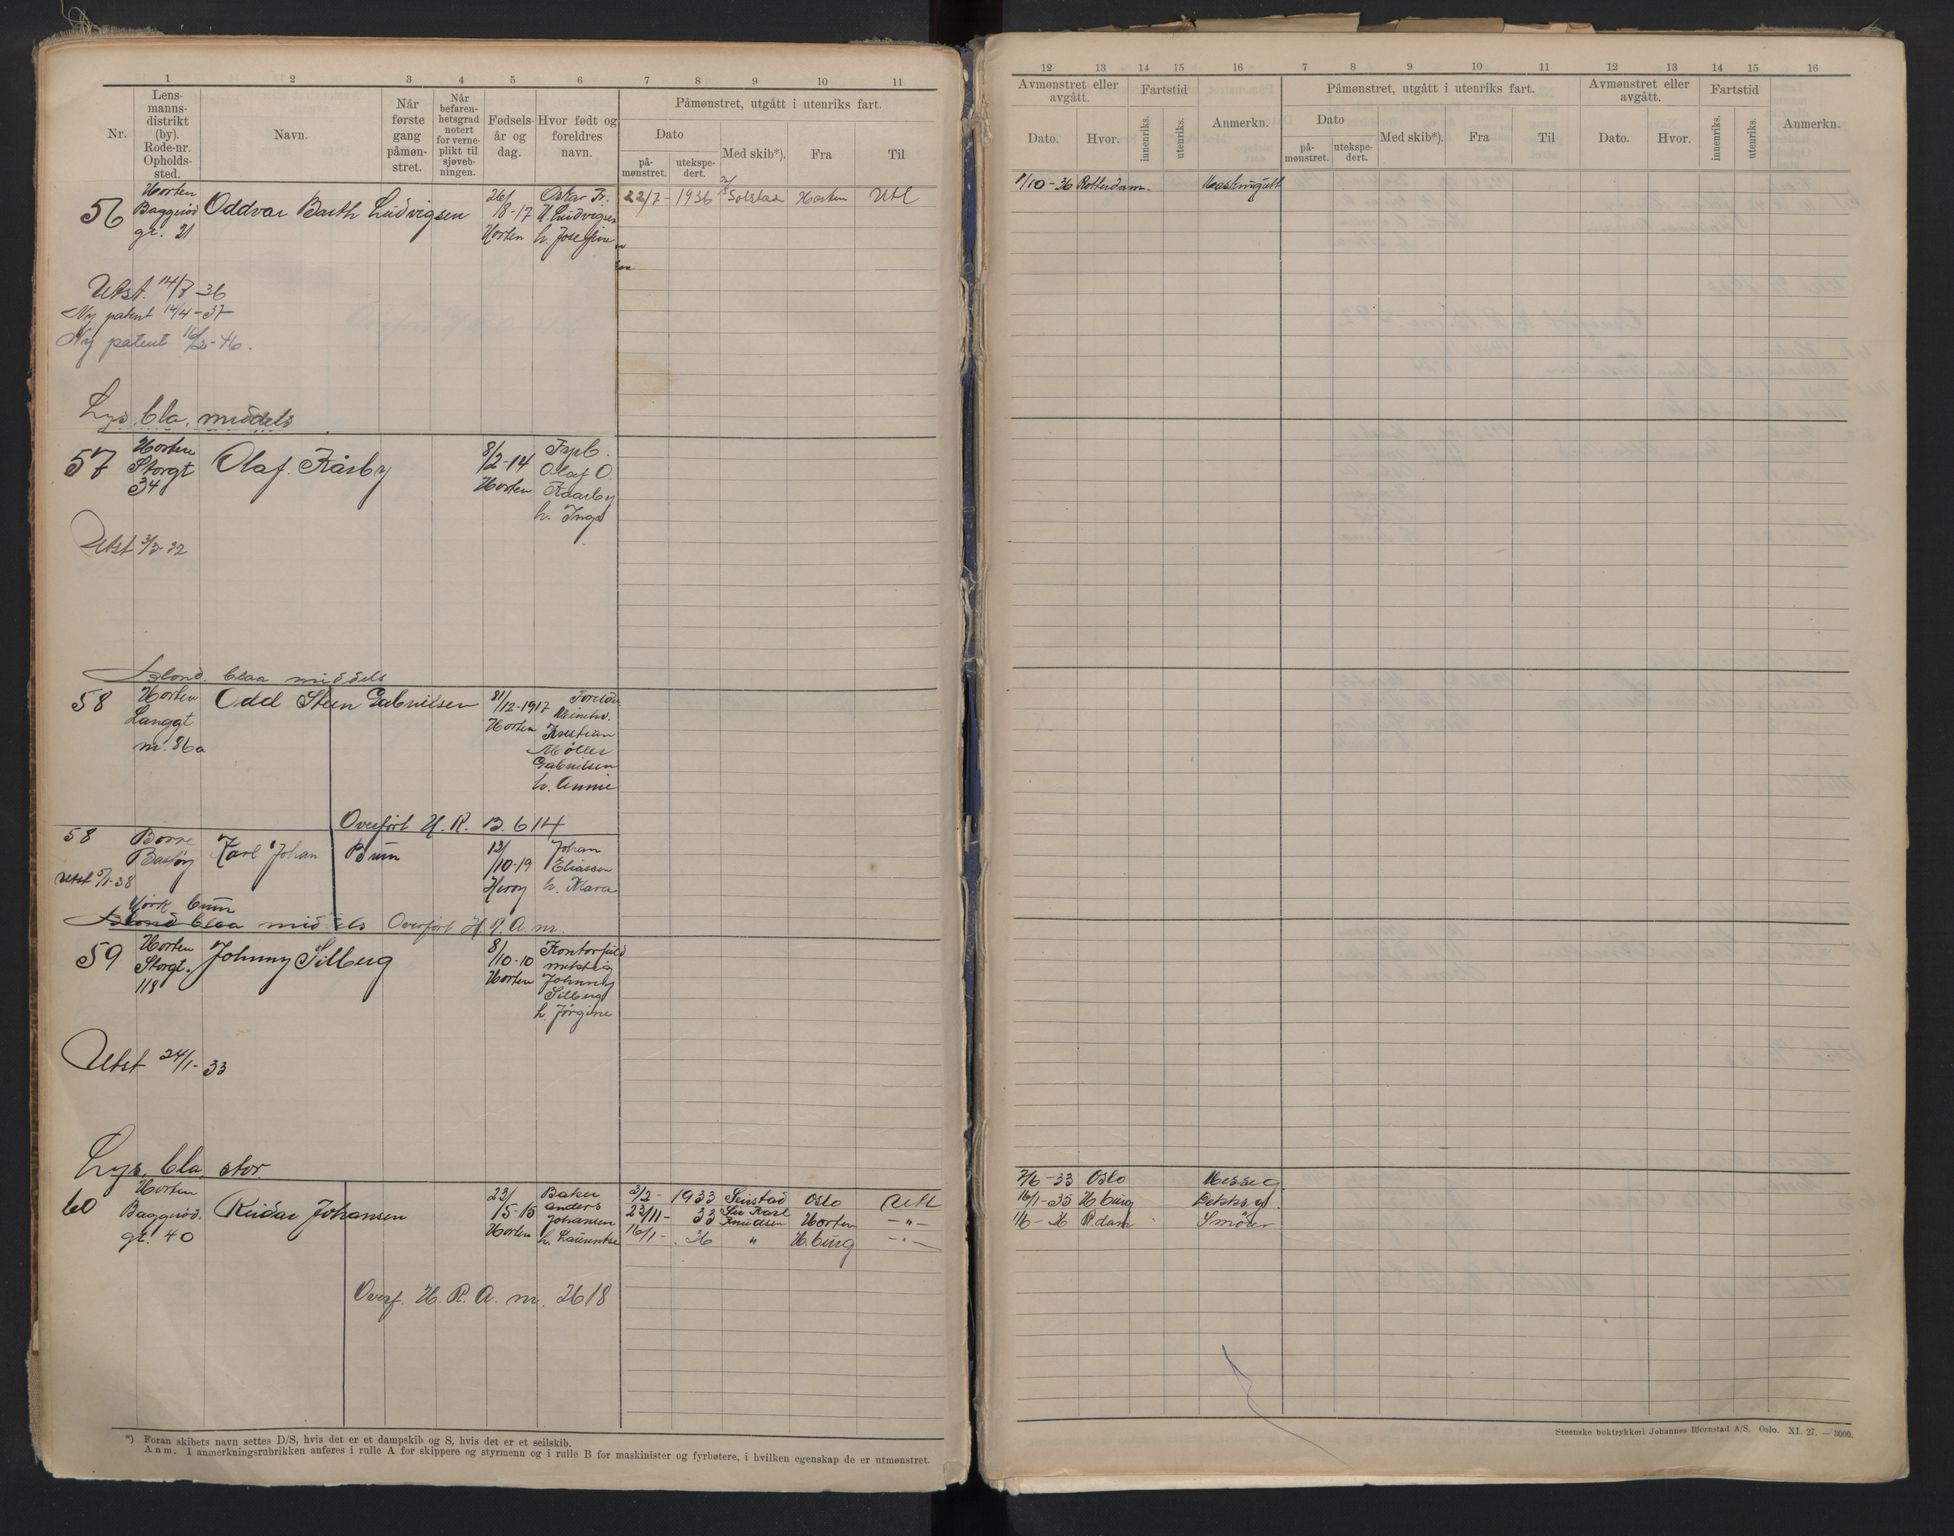 1 2 3 4 5 6 7 8 9 10 11
Nr.
Lens-
manns-
distrikt
(by).
Rode-nr.
Opholds-
sted.
Navn.
Når
første
gang
påmøn-
stret.
Når
befaren-
hetsgrad
notert
for verne-
plikt til
sjøveb-
ningen.
Fødsels-
år og
dag.
Hvor født og
foreldres
navn.
Påmønstret, utgått i utenriks fart.
Dato
på-
mønstret.
utekspe-
dert.
Med skib*).
Fra
Til
56
Horten
Baggerød
gt. 21
Oddvar Barth Ludvigsen
26/
8-17
Horten
Oskar Fr.
Ludvigsen
h. Josefine
22/7 - 1936 Solstad Horten Utl
Utst. 14/7-36
Ny patent 14/4-37
Ny patent 16/2-46.
Lys, bla, middels
57
Horten
Storgt
34
Olaf Kårby
8/2-14
Horten
Olaf O.
h. Inga
Utst 3/3-32
Blond. blaa middels
58
Horten
Langgt
nr. 86a
Odd Steen Gabrielsen
31/12-1917
Horten
Kristian
Møller
Gabrielsen
h. Annie
Overført H. R. B. 614
58
Borre
Bastøy
Utst 5/1-38
Karl Johan Bum
13/
10-19
Herøy
Johan
Eliassen
h. Klara
Mørk brun
Blond blaa middels Overført H. R. A. nr.
59
Horten
Storgt.
118
Johnny Silberg
8/
10-10
Horten
Johnny
Silberg
h. Jørgine
Utst 24/1-33
Lys, bla, stor.
60
Horten
Baggerød.
gt. 40
Reidar Johansen
23/
5-15
Horten
Baker
Anders
Johansen
h. Laurentse
3/2 - 1933 Seistad Oslo Utl
23/11 - 33 Knudsen Horten -"-
16/1 - 36 " H.burg -"-
Overf. H. R. A. nr. 2618
*) Foran skibets navn settes D/S, hvis det er et dampskib og S, hvis det er et seilskib.
Anm. I anmerkningsrubrikken anføres i rulle A for skippere og styrmenn og i rulle B for maskinister og fyrbøtere, i hvilken egenskap de er utmønstret.
12 13 14 15 16 7 8 9 10 11 12 13 14 15 16
Avmønstret eller
avgått.
Dato.
Hvor.
Fartstid
innenriks.
utenriks.
Anmerkn.
Påmønstret, utgått i utenriks fart.
Dato
på-
mønstret.
utekspe-
dert.
Med skib*).
Fra
Til
Avmønstret eller
avgått.
Dato.
Hvor.
Fartstid
innenriks.
utenriks.
Anmerkn.
1/10-36 Rotterdam. Maskingutt
7/6-33 Oslo Messeg.
16/1-35 H.burg Dekksg.
1/6-36 R.dam Smører
Steenske boktrykkeri Johannes Bjørnstad A/S. Oslo. XI. 27. — 3000.